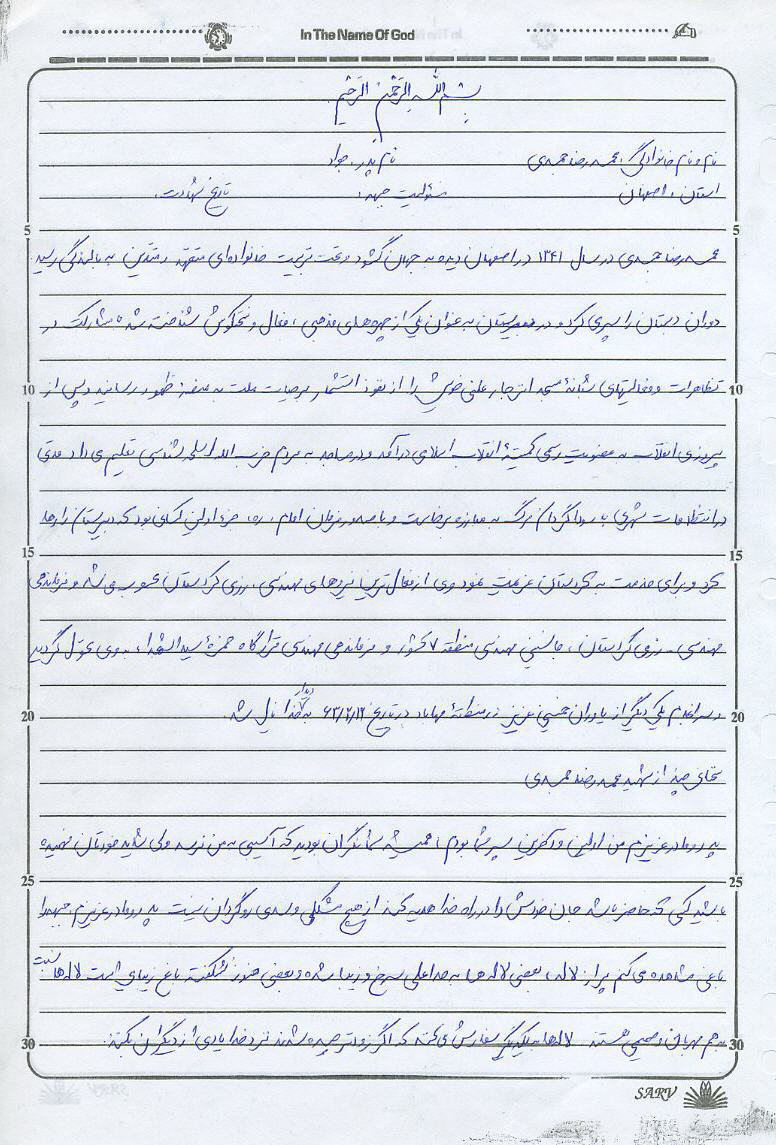 In The Name Of God
بسم الله الرحمن الرحیم
نام و نام خانوادگی: محمدرضا حمیدی نام پدر: جواد
استان: اصفهان مسئولیت جبهه: تاریخ شهادت:
5 5
محمدرضا حمیدی در سال ۱۳۴۱ در اصفهان دیده به جهان گشود و تحت تربیت خانواده‌ای متعهد و متدین به بالندگی رسید
دوران دبستان را سپری کرد و در دبیرستان به عنوان یکی از چهره‌های مذهبی، فعال و سختکوش شناخته شد، مشارکت در
10 تظاهرات و فعالیتهای شبانهٔ مسجد انزجار علنی خویش را از نفوذ استثمار بر حیات ملت به منصهٔ ظهور رسانید و پس از 10
پیروزی انقلاب به عضویت رسمی کمیتهٔ انقلاب اسلامی درآمد و در مساجد به مردم حزب الله اسلحه شناسی تعلیم می‌داد مدتی
در انتظامات شهری با سوداگران مرگ به مبارزه برخاست و با صدور فرمان امام (ره) جزء اولین کسانی بود که دبیرستان را رها
15 15
کرد و برای خدمت به کردستان عزیمت نمود وی از فعال‌ترین نیروهای مهندسی رزمی کردستان محسوب می‌شد و فرماندهی
مهندسی - رزمی کردستان، جانشینی مهندسی منطقه ۷ کشور و فرماندهی مهندسی قرارگاه حمزهٔ سیدالشهداء به وی محول گردید
20 و سرانجام یکی دیگر از یاوران خمینی عزیز در منطقهٔ مهاباد در تاریخ به دیدار خدا نایل شد. 20
سخنانی چند از شهید محمدرضا حمیدی
پدر و مادر عزیزم من اولین و آخرین پسر شما بودم، همیشه شما نگران بودید که آسیبی به من نرسد ولی شاید خودتان فهمیده
25 25
باشید کسی که حاضر باشد جان خودش را در راه خدا هدیه کند از هیچ مشکلی و سدی روگردان نیست پدر و مادر عزیزم، جبهه را
باغی مشاهده می‌کنم پر از لاله، بعضی لاله‌ها به حد اعلی سرخ و زیبا شده و بعضی هنوز نشکفته باغ زیبایی است لاله‌ها نسبت
30 به هم مهربان و صمیمی هستند. لاله‌ها به یکدیگر سفارش می‌کنند که اگر زودتر چیده شدند نزد خدا یادی از دیگران بکنند. 30
SARV